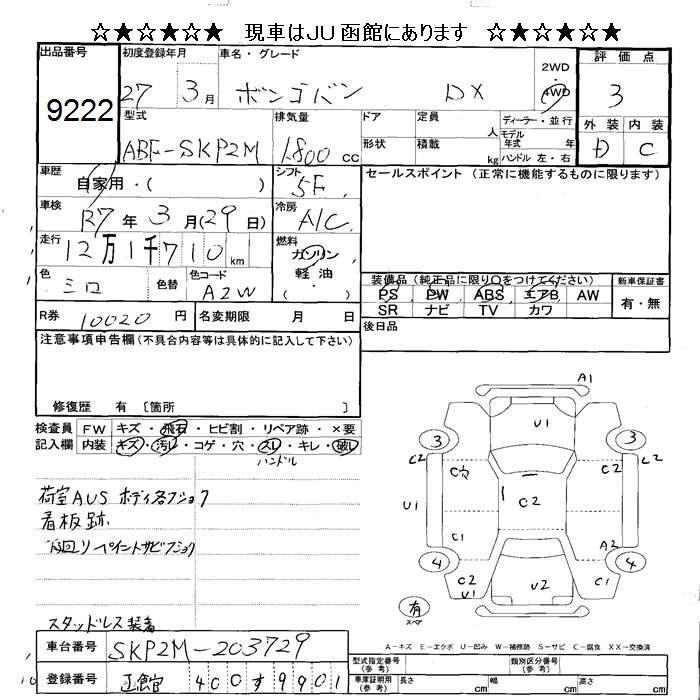 ☆★☆★☆★ 現車はJU函館にあります ☆★☆★☆★
出品番号 初度登録年月 車名・グレード 2WD 評価点
9222 27 3月 ボンゴバン DX 4WD 3
型式 排気量 ドア 定員 人 ディーラー・並行 外装 内装
ABF-SKP2M 1800 cc 形状 積載 kg モデル年式 年式 ハンドル 左・右 D C
車歴 自家用・( ) シフト 5F セールスポイント (正常に機能するものに限ります)
車検 R7年 3月(29日) 冷房 A/C
走行 12万1千710km 燃料 ガソリン 軽油 ( )
色 シロ 色替 色コード A2W 装備品 (純正品に限り○をつけてください) 新車保証書
PS PW ABS エアB AW 有・無
SR ナビ TV カワ
R券 10020円 名変期限 月 日 後日品
注意事項申告欄(不具合内容等は具体的に記入して下さい)
修復歴 有 〔箇所 〕
検査員 FW キズ・飛石・ヒビ割・リペア跡・×要
記入欄 内装 キズ・汚レ・コゲ・穴・スレ・キレ・破レ
ハンドル
荷室AUS ボディ名クショク
看板跡
下回リペイントサビクショク
スタッドレス装着
A1
U1
3 3
L2 C穴 L2
U1 C2
C1 A2
4 4
C2 U2 C1
U1
有
スペア
A-キズ E-エクボ U-凹み W-補修跡 S-サビ C-腐食 XX-交換済
車台番号 SKP2M-203729 型式指定番号 (参考) 類別区分番号 (参考)
登録番号 函館 400す9901 車庫証明用 (参考) 長さ cm 幅 cm 高さ cm